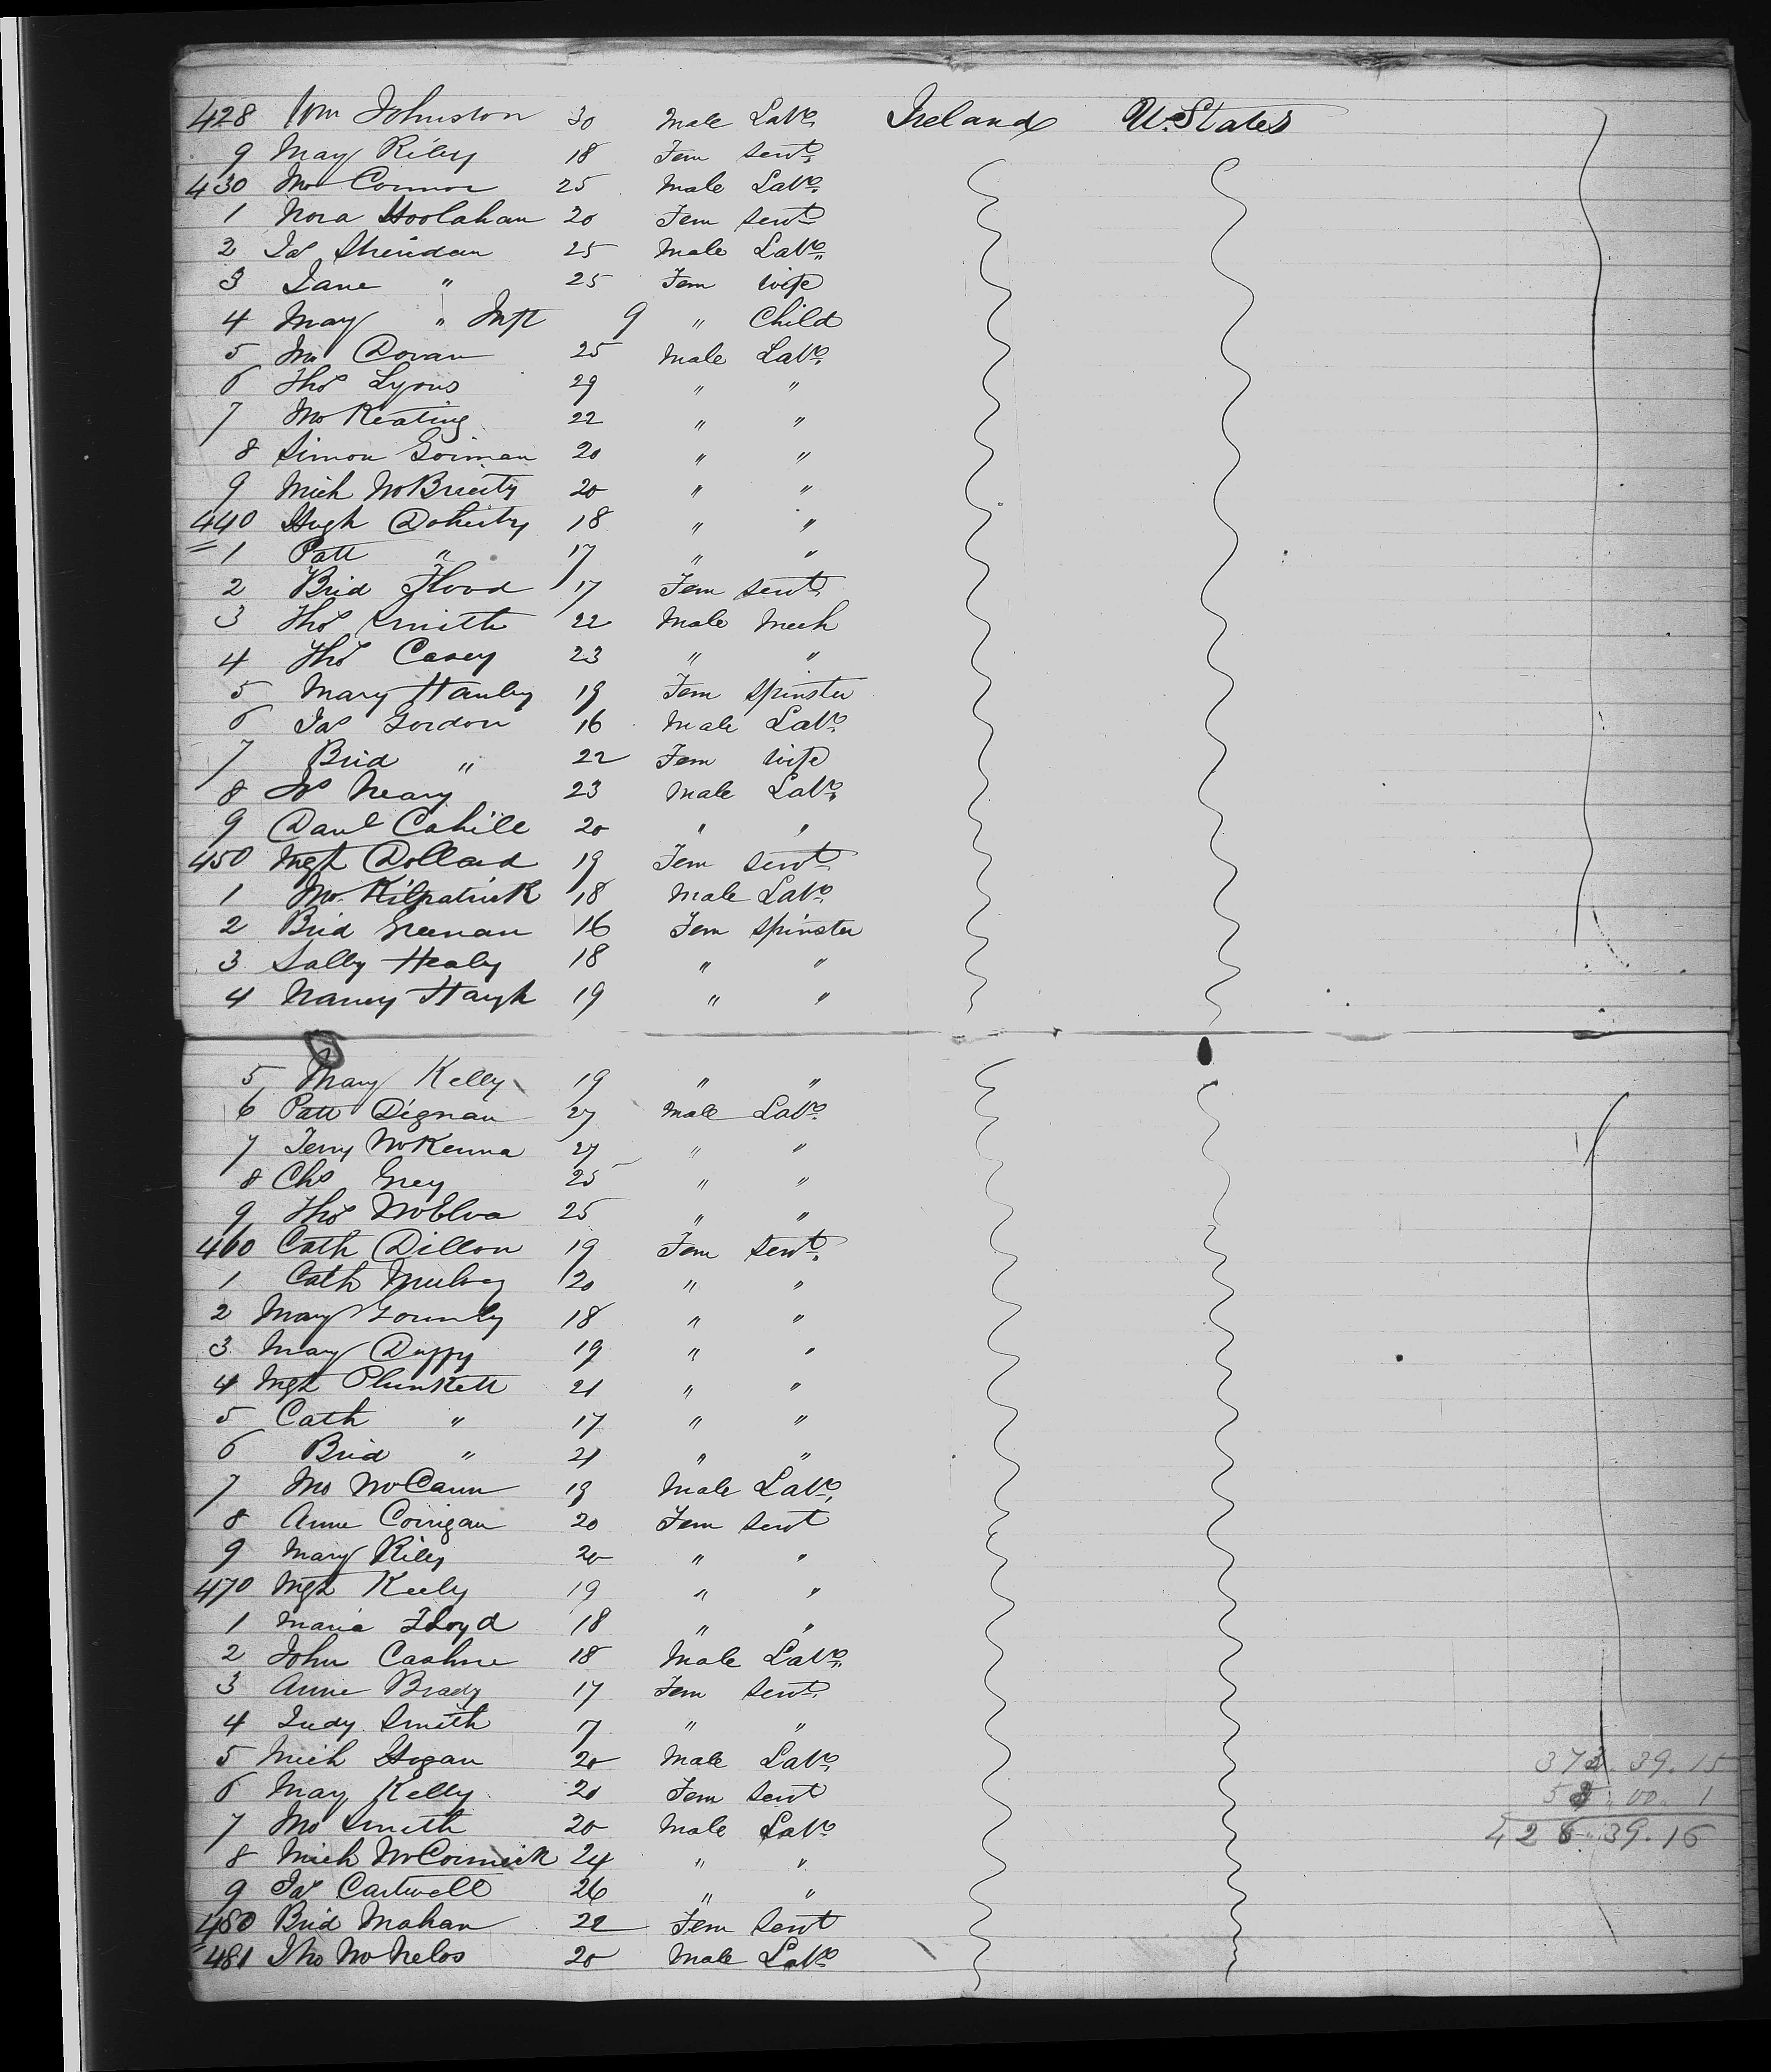 428 Wm Johnston 30 Male Labr. Ireland U. States
9 Mary Riley 18 Fem Servt.
430 Jno Connor 25 Male Labr.
1 Nora Hoolahan 20 Fem Servt
2 Jas Sheridan 25 Male Labr.
3 Jane " 25 Fem Wife
4 Mary " Inft 9 " Child
5 Jno Doran 25 Male Labr.
6 Thos Lyons 29 " "
7 Jno Keating 22 " "
8 Simon Gorman 20 " "
9 Mich McBrierty 20 " "
440 Hugh Doherty 18 " "
1 Patt " 17 " "
2 Brid Flood 17 Fem Servt.
3 Thos Smith 22 Male Mech
4 Thos Casey 23 " "
5 Mary Hanley 19 Fem Spinster
6 Jas Gordon 16 Male Labr.
7 Brid " 22 Fem Wife
8 Neary 23 Male Labr.
9 Danl Cahill 20 " "
450 Mgt Dollard 19 Fem Servt
1 Jno. Kilpatrick 18 Male Labr.
2 Brid Greenan 16 Fem Spinster
3 Sally Healy 18 " "
4 Nancy Haugh 19 " "
5 Mary Kelly 19 " "
6 Patt Dignan 27 Male Labr.
7 Terry McKenna 27 " "
8 Chs Grey 25 " "
9 Thos McElva 25 " "
460 Cath Dillon 19 Fem Servt.
1 Cath Mulvey 20 " "
2 Mary Gournly 18 " "
3 Mary Duffy 19 " "
4 Mgt Plunkett 21 " "
5 Cath " 17 " "
6 Brid " 21 " "
7 Jno McCann 19 Male Labr.
8 Anne Corrigan 20 Fem Servt
9 Mary Riley 20 " "
470 Mgt Keely 19 " "
1 Maria Floyd 18 " "
2 John Cashne 18 Male Labr.
3 Anne Brady 17 Fem Servt.
4 Judy Smith 17 " "
5 Mich Hogan 20 Male Labr.
6 Mary Kelly 20 Fem Servt
7 Jno Smith 20 Male Labr.
8 Mich McCormick 24 " "
9 Jas Cartwell 26 " "
480 Brid Mahan 22 Fem Servt
481 Thos McNelos 20 Male Labr.
39. 15
00. 1
39. 16